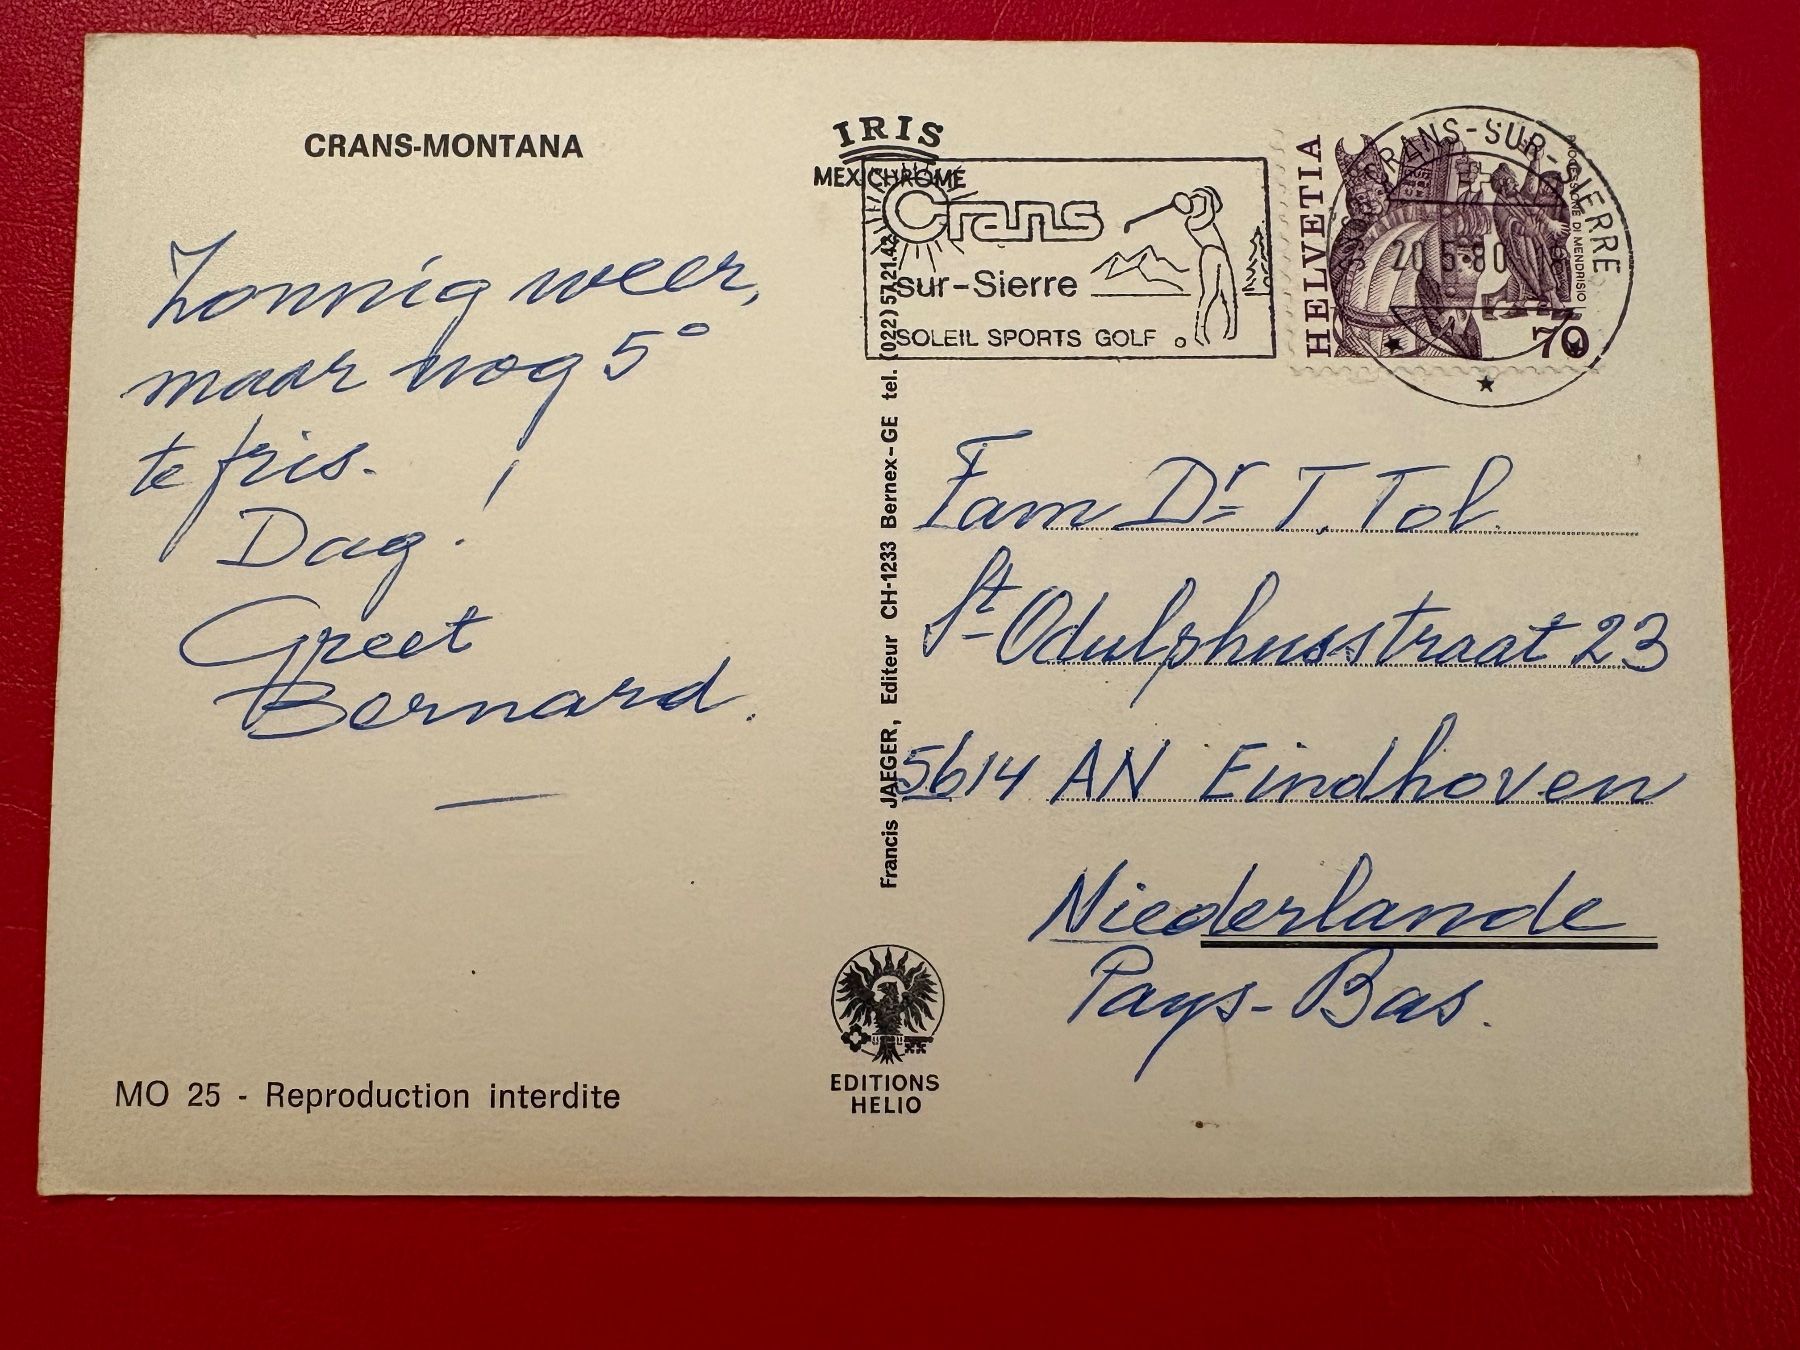 CRANS-MONTANA
Zonnig weer,
maar nog 5°
te fris.
Dag!
Greet
Bernard.
MO 25 - Reproduction interdite
IRIS
MEXICHROME
Crans
sur-Sierre
SOLEIL SPORTS GOLF
HELVETIA
PROCESSIONE DI MENDRISIO
70
CRANS-SUR-SIERRE
20.5.80
Francis JAEGER, Editeur CH-1233 Bernex-GE tel. (022) 57.21.42
Fam Dr T. Tol
St Odulphusstraat 23
5614 AN Eindhoven
Niederlande
Pays-Bas.
EDITIONS
HELIO